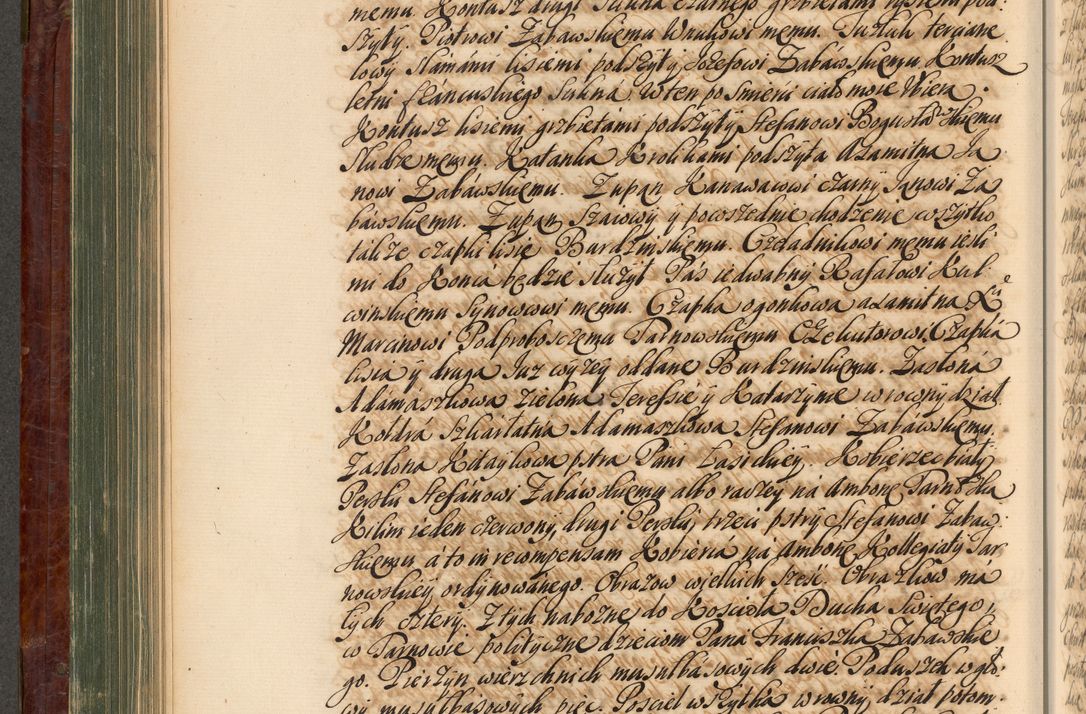 memu. Kontusz drugi Sukna czarnego grzbietami rysiemi pod:
szyty. Piotrowi Zabawskiemu Wnukowi memu. Tuzluk tercyane
lowy slamami lisiemi podszyty Jozefowi Zabawskiemu. Kontusz
letni francuskiego Sukna. W ten po śmierci ciało moie ubiorą.
Kontusz lisiemi grzbietami podszyty, Stefanowi Bogusławskiemu
Słudze memu. Katanka Krolikami podszyta Axamitna Ja
nowi Zabawskiemu. Zupan Kanawacowi czarny Janowi Za
bawskiemu. Zupan Szarowy y powszednie chodzenie wszytko
także czapki lisie Burdzinskiemu. Czeladnikowi memu iesli
mi do Konca będzie służył. Pas iedwabny Rafałowi Kul
winskiemu Synowcowi memu. Czapka ogonkowa axamitna Xu
Marcinowi Podproboszczemu Tarnowskiemu Exekutorowi. Czapka
lisia y druga Juz wyzey oddane Burdzinskiemu. Zasłona
Adamaszkowa zielona Teressie y Katarzynie w rowny dział.
Kołdra Szkarłatna Adamaszkowa Stefanowi Zabawskiemu.
Zasłona Kitaykowa pstra Pani Łasickiey. Kobierzec biały
Perski Stefanowi Zabawskiemu albo radzey na Ambonę Tarnowska
Kilim ieden czerwony, drugi Perski, trzeci pstry Stefanowi Zabaw:
skiemu a to in recompensam Kobierca na Ambonę Kollegiaty Tar
nowskiey ordynowanego. Obrazow wielkich sześć. Obrazkow ma
łych cztery. Z tych nabozne do Koscioła Ducha Swiętego
w Tarnowie polityczne dzieciom Pana Franciszka Zabawskie
go. Pierzyn wierzchnich musulbasowych dwie. Poduszek w gło
wy musulbasowych pięć. Posciel wszytka w rowny dział potom